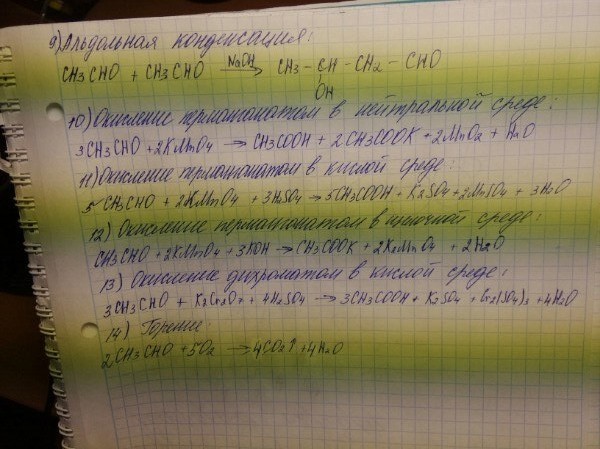 9) Альдольная конденсация:
CH3CHO + CH3CHO NaOH → CH3 – CH – CH2 – CHO
OH
10) Окисление перманганатом в нейтральной среде:
3CH3CHO + 2KMnO4 → CH3COOH + 2CH3COOK + 2MnO2 + H2O
11) Окисление перманганатом в кислой среде:
5 CH3CHO + 2KMnO4 + 3H2SO4 → 5CH3COOH + K2SO4 + 2MnSO4 + 3H2O
12) Окисление перманганатом в щелочной среде:
CH3CHO + 2KMnO4 + 3KOH → CH3COOK + 2K2MnO4 + 2H2O
13) Окисление дихроматом в кислой среде:
3CH3CHO + K2Cr2O7 + 4H2SO4 → 3CH3COOH + K2SO4 + Cr2(SO4)3 + 4H2O
14) Горение:
2CH3CHO + 5O2 → 4CO2↑ + 4H2O